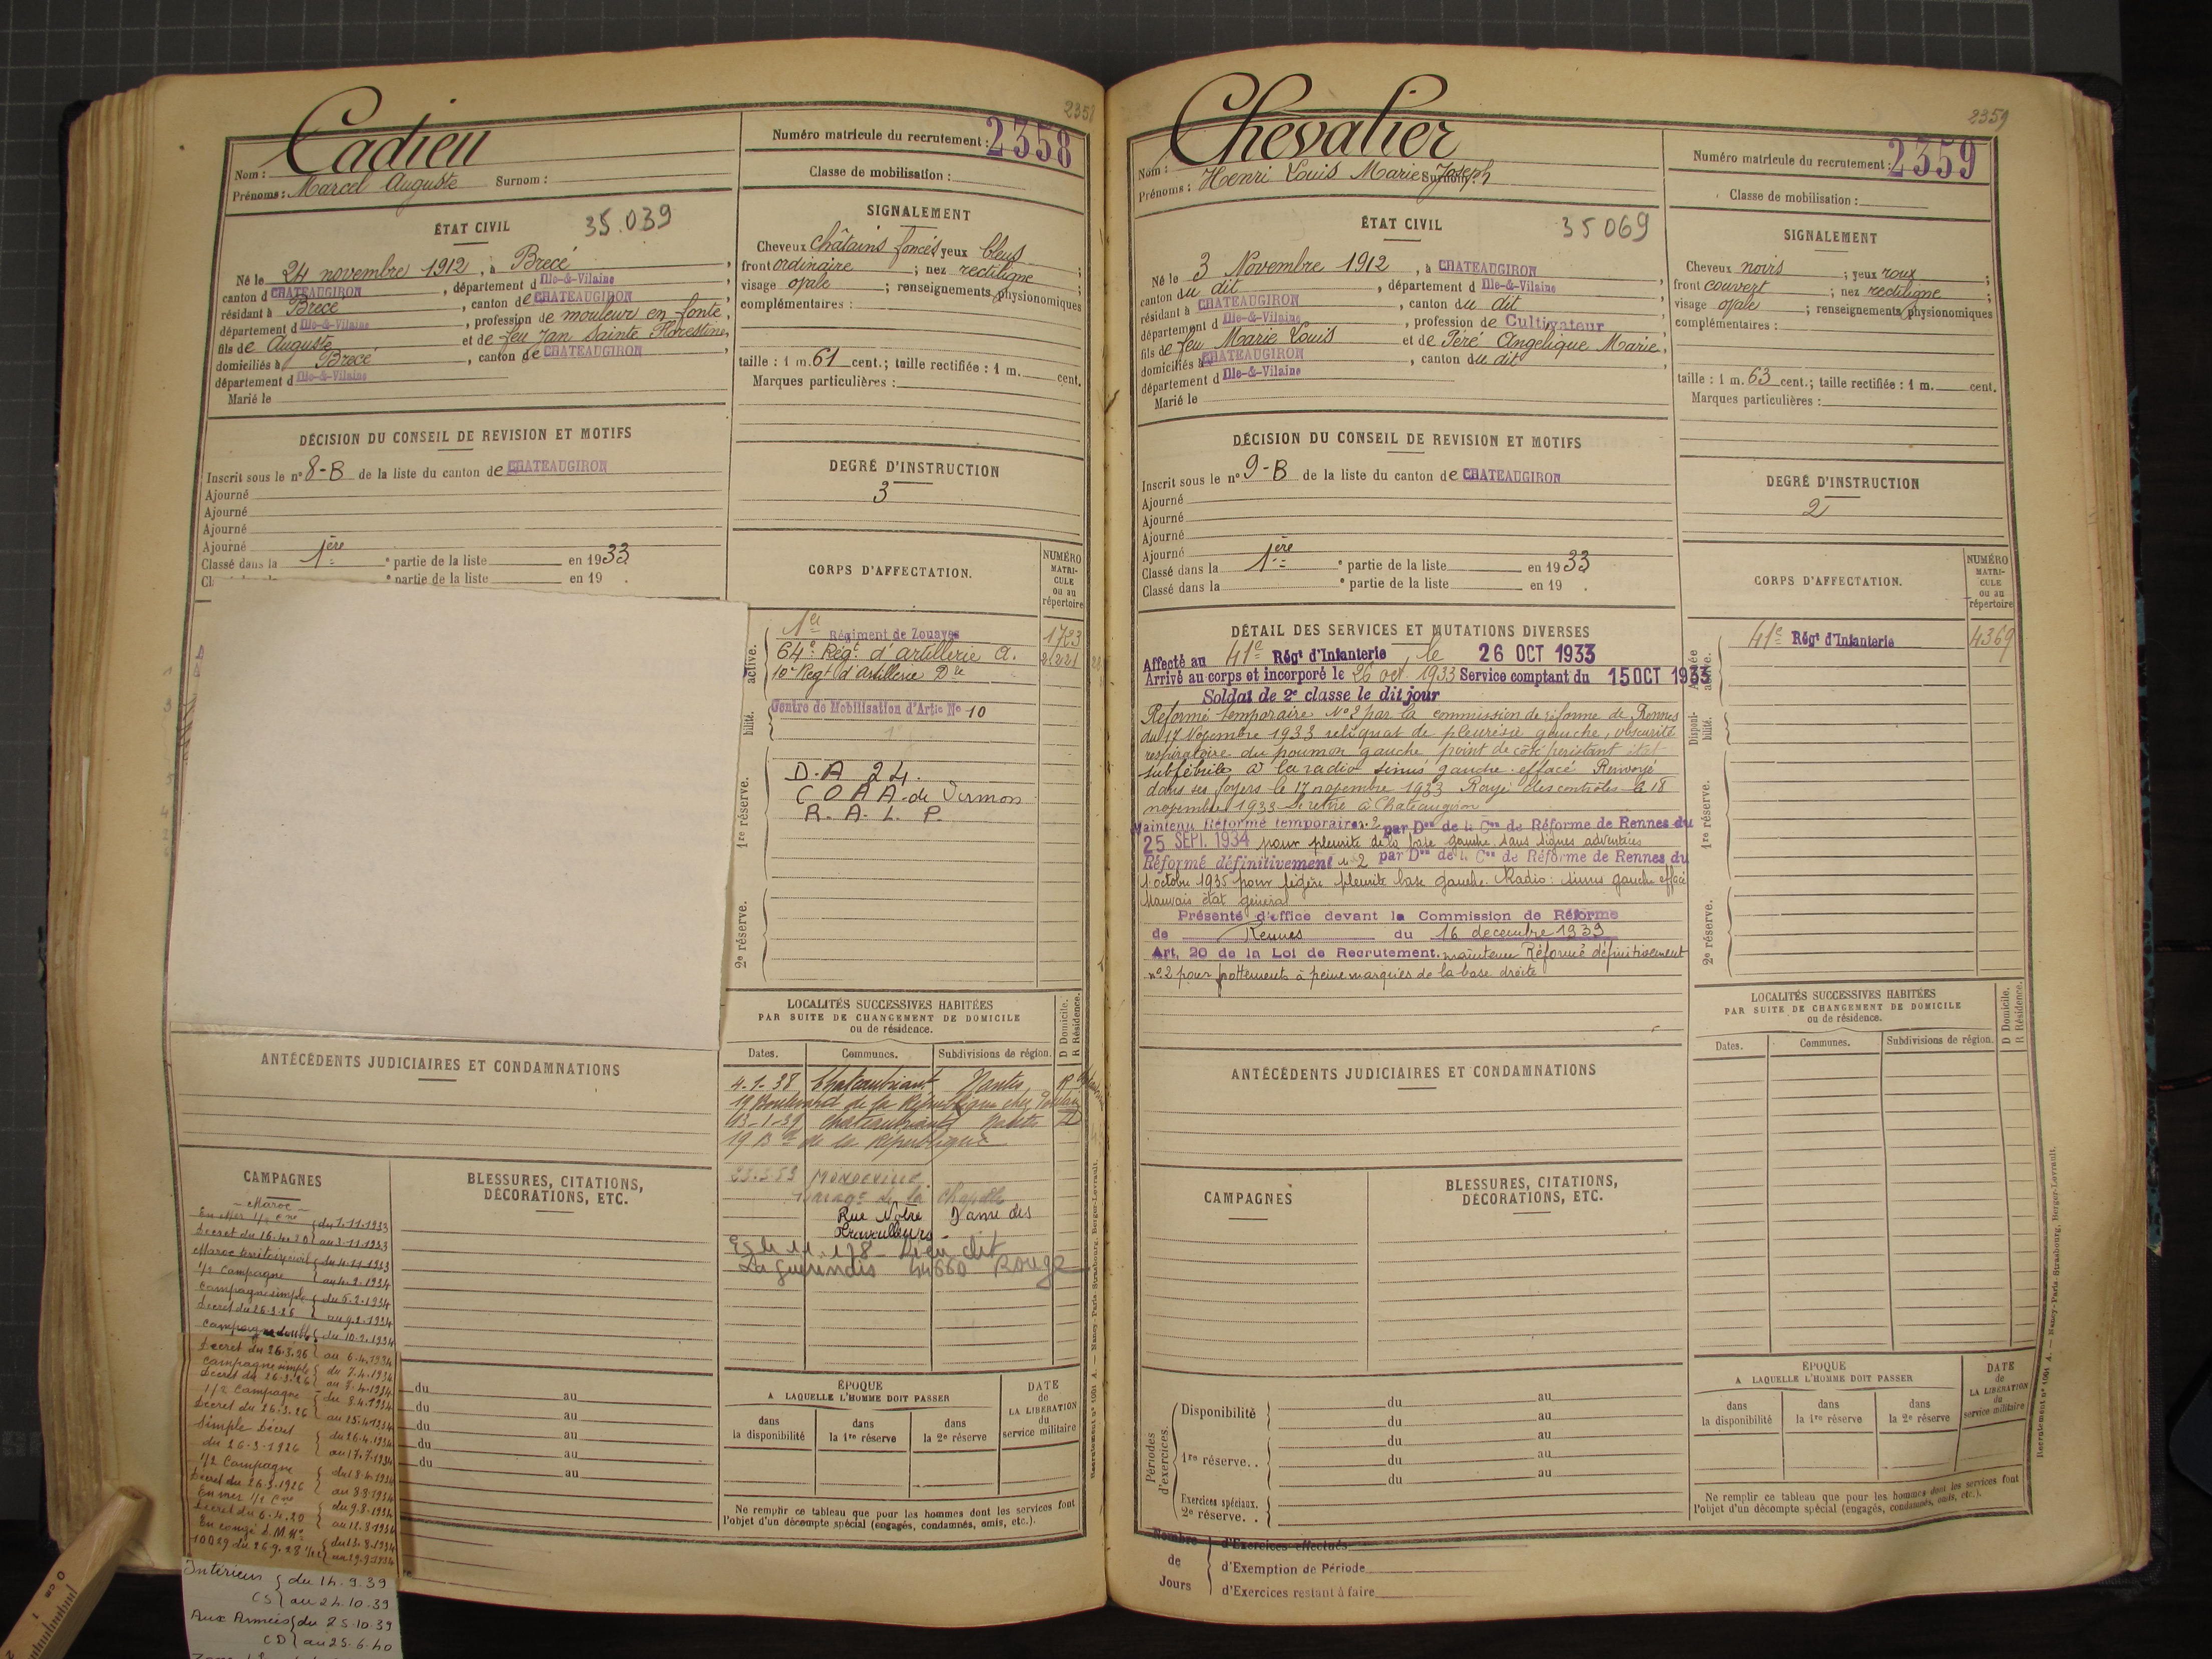 2358
Cadieu
Nom :
Prénoms : Marcel Auguste Surnom :
Numéro matricule du recrutement : 2358
Classe de mobilisation :
ÉTAT CIVIL
35.039
Né le 24 novembre 1912, à Brecé
canton d CHATEAUGIRON, département d Ille-&-Vilaine
résidant à Brecé, canton de CHATEAUGIRON
département d Ille-&-Vilaine, profession de mouleur en fonte,
fils de Auguste et de feu Jan Sainte Florestine,
domiciliés à Brecé, canton de CHATEAUGIRON,
département d Ille-&-Vilaine
Marié le
SIGNALEMENT
Cheveux châtains foncés yeux bleus ;
front ordinaire ; nez rectiligne ;
visage ovale ; renseignements physionomiques
complémentaires :
taille : 1 m. 61 cent.; taille rectifiée : 1 m. cent.
Marques particulières :
DÉCISION DU CONSEIL DE REVISION ET MOTIFS
Inscrit sous le n° 8-B de la liste du canton de CHATEAUGIRON
Ajourné
Ajourné
Ajourné
Ajourné
Classé dans la 1ère partie de la liste en 1933
partie de la liste en 19 .
DEGRÉ D'INSTRUCTION
3
CORPS D'AFFECTATION.
NUMÉRO
MATRI-
CULE
ou au
répertoire
active.
1er Régiment de Zouaves 1723
64e Régt d'artillerie a.
10e Regt d'artillerie Dre
bilité.
Centre de Mobilisation d'Artie No 10
1re réserve.
D.A 24.
C O A A. de Vernon
R. A. L. P.
2e réserve.
LOCALITÉS SUCCESSIVES HABITÉES
PAR SUITE DE CHANGEMENT DE DOMICILE
ou de résidence.
D Domicile.
R Résidence.
Dates. Communes. Subdivisions de région.
4.1.38 Chateaubriant Nantes R
19 Boulevard de la République chez
13-1-39 Chateaubriant Nantes D
19 Bd de la République
23.3.53 MONDEVILLE
de la Chapelle
Rue Notre Dame des
Travailleurs
Lieu dit
44660 Rougé
ANTÉCÉDENTS JUDICIAIRES ET CONDAMNATIONS
CAMPAGNES
- Maroc -
En Mer 1/2 Cne du 1.11.1933
Décret du 16.4.20 au 3.11.1933
Maroc territoire civil du 4.11.1933
1/2 Campagne au 4.2.1934
Campagne simple du 5.2.1934
Décret du 26.3.26 au 9.2.1934
Campagne double du 10.2.1934
Décret du 26.3.26 au 6.4.1934
Campagne simple du 7.4.1934
Décret du 26.3.26 au 7.4.1934
1/2 Campagne du 8.4.1934
Décret du 26.3.26 au 25.4.1934
Simple Décret du 26.4.1934
du 26-3-1926 au 17.7.1934
1/2 Campagne du 18.4.1934
Décret du 26.3.1926 au 8.8.1934
En mer 1/2 Cne du 9.8.1934
Décret du 6.4.20 au 12.8.1934
En congé D.M. No du 13.8.1934
10029 du 26.9.28
Intérieur du 14.9.39
CS au 24.10.39
Aux Armées du 25.10.39
CD au 25.6.40
BLESSURES, CITATIONS,
DÉCORATIONS, ETC.
du au
du au
du au
du au
du au
ÉPOQUE
A LAQUELLE L'HOMME DOIT PASSER
dans la disponibilité
dans la 1re réserve
dans la 2e réserve
DATE
de
LA LIBÉRATION
du
service militaire
Ne remplir ce tableau que pour les hommes dont les services font
l'objet d'un décompte spécial (engagés, condamnés, omis, etc.).
Recrutement n° 1001 A. — Nancy-Paris-Strasbourg, Berger-Levrault.
2359
Chevalier
Nom :
Prénoms : Henri Louis Marie Joseph Surnom :
Numéro matricule du recrutement : 2359
Classe de mobilisation :
ÉTAT CIVIL
35069
Né le 3 Novembre 1912, à CHATEAUGIRON
canton du dit, département d Ille-&-Vilaine
résidant à CHATEAUGIRON, canton du dit
département d Ille-&-Vilaine, profession de Cultivateur
fils de feu Marie Louis et de Péré Angelique Marie,
domiciliés à CHATEAUGIRON, canton du dit
département d Ille-&-Vilaine
Marié le
SIGNALEMENT
Cheveux noirs ; yeux roux ;
front couvert ; nez rectiligne ;
visage ovale ; renseignements physionomiques
complémentaires :
taille : 1 m. 63 cent.; taille rectifiée : 1 m. cent.
Marques particulières :
DÉCISION DU CONSEIL DE REVISION ET MOTIFS
Inscrit sous le n° 9-B de la liste du canton de CHATEAUGIRON
Ajourné
Ajourné
Ajourné
Ajourné
Classé dans la 1ère partie de la liste en 1933
Classé dans la partie de la liste en 19 .
DEGRÉ D'INSTRUCTION
2
DÉTAIL DES SERVICES ET MUTATIONS DIVERSES
Affecté au 41e Régt d'Infanterie, le 26 OCT 1933
Arrivé au corps et incorporé le 26 oct. 1933 Service comptant du 15 OCT 1933
Soldat de 2e classe le dit jour
Réformé temporaire No 2 par la commission de réforme de Rennes
du 17 Novembre 1933 reliquat de pleurésie gauche, obscurité
respiratoire du poumon gauche point de côté persistant état
subfébrile à la radio sinus gauche effacé Renvoyé
dans ses foyers le 17 novembre 1933 Rayé des contrôles le 18
novembre 1933 Se retire à Chateaugiron
Maintenu Réformé temporaire n. 2 par Don de la Con de Réforme de Rennes du
25 SEPT. 1934 pour pleurite de la base gauche sans signes adventices
Réformé définitivement n. 2 par Don de la Con de Réforme de Rennes du
1 octobre 1935 pour légère pleurite base gauche. Radio : sinus gauche effacé
Mauvais état général
Présenté d'office devant la Commission de Réforme
de Rennes du 16 décembre 1939
Art. 20 de la Loi de Recrutement. maintenu Réformé définitivement
n° 2 pour frottements à peine marqués de la base droite
CORPS D'AFFECTATION.
NUMÉRO
MATRI-
CULE
ou au
répertoire
Armée active.
41e Régt d'Infanterie 4369
Disponi-
bilité.
1re réserve.
2e réserve.
LOCALITÉS SUCCESSIVES HABITÉES
PAR SUITE DE CHANGEMENT DE DOMICILE
ou de résidence.
D Domicile.
R Résidence.
Dates. Communes. Subdivisions de région.
ANTÉCÉDENTS JUDICIAIRES ET CONDAMNATIONS
CAMPAGNES
BLESSURES, CITATIONS,
DÉCORATIONS, ETC.
Périodes d'exercices.
Disponibilité
du au
du au
1re réserve. .
du au
du au
du au
Exercices spéciaux.
2e réserve. .
Nombre
de
Jours
d'Exercices effectués
d'Exemption de Période
d'Exercices restant à faire
ÉPOQUE
A LAQUELLE L'HOMME DOIT PASSER
dans la disponibilité
dans la 1re réserve
dans la 2e réserve
DATE
de
LA LIBÉRATION
du
service militaire
Ne remplir ce tableau que pour les hommes dont les services font
l'objet d'un décompte spécial (engagés, condamnés, omis, etc.).
Recrutement n° 1001 A. — Nancy-Paris-Strasbourg, Berger-Levrault.